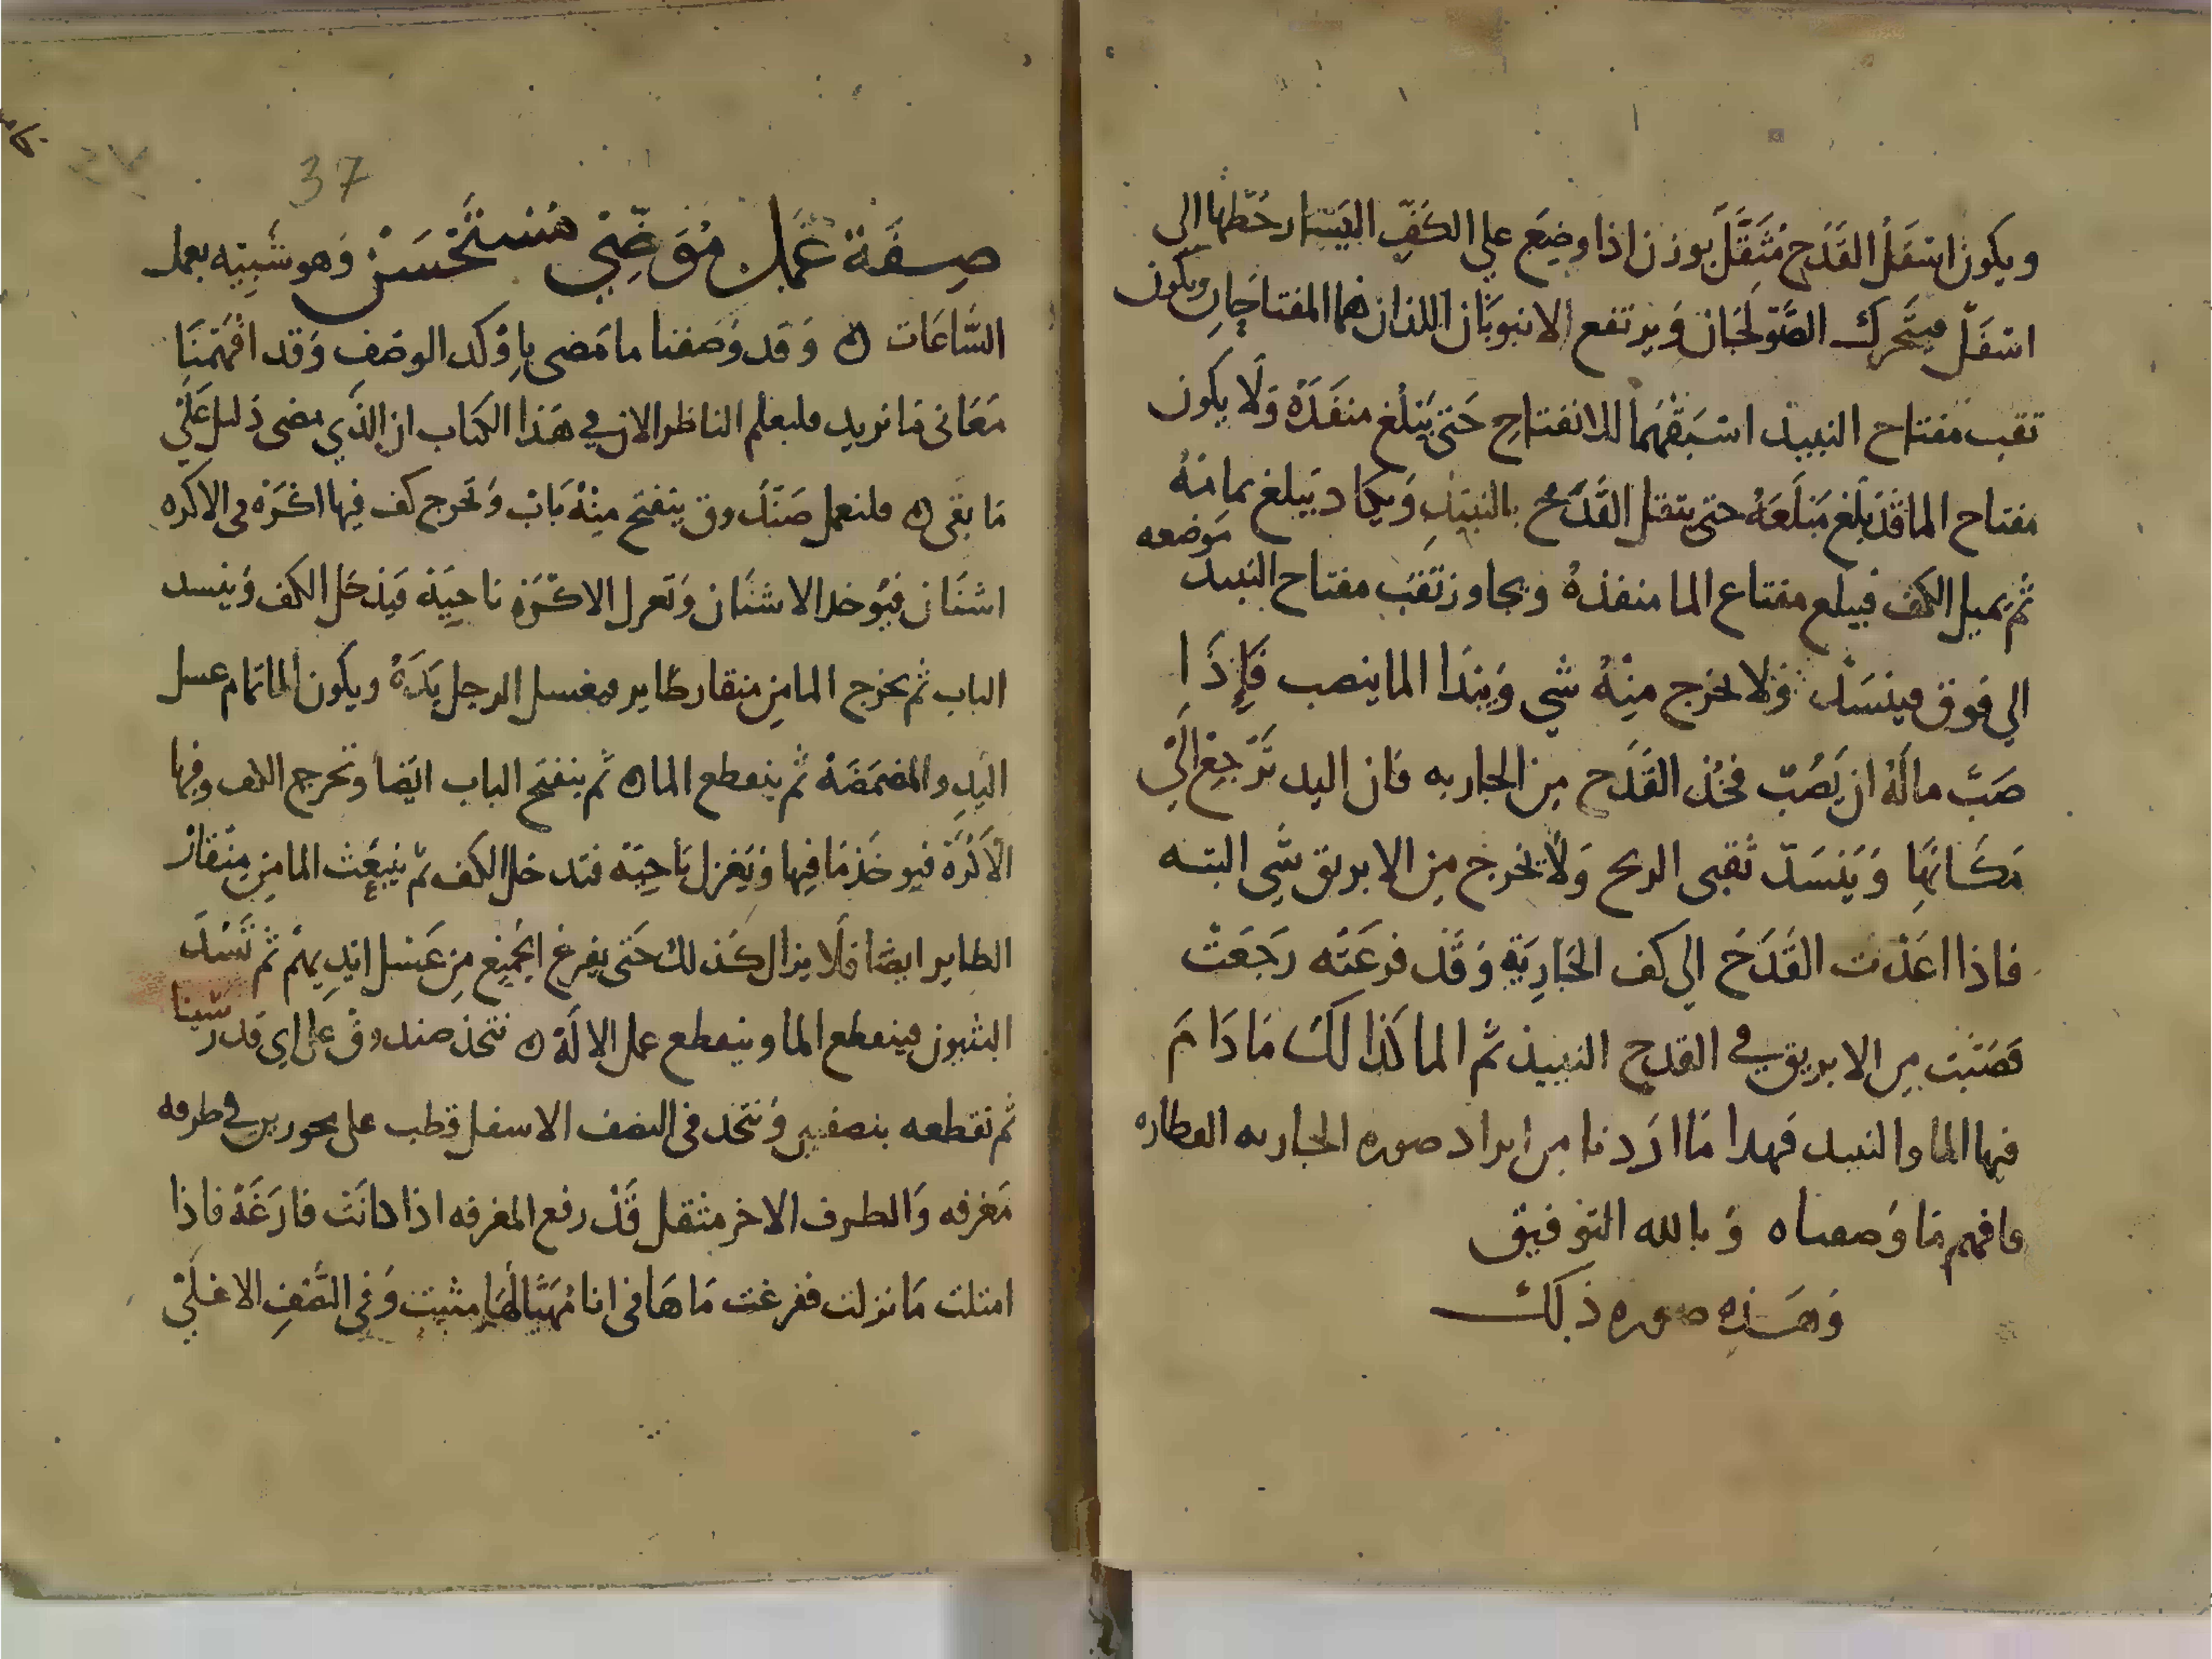 ويكون اسفل القدح مثقل بوزن اذا وضع علي الكف اليسار حطها الي
اسفل فيتحرك الصولجان ويرتفع الانبوبان اللذان هما المفتاحان ويكون
ثقب مفتاح النبيذ اسبقهما للانفتاح حتى يبلغ منفذه ولا يكون
مفتاح الما قد بلغ مبلغه حتى يثقل القدح بالنبيذ ويكاد يبلغ تمامه
موضعه
ثم يميل الكف فيبلغ مفتاع الما منفذه ويجاوز ثقب مفتاح النبيذ
الي فوق فينسد ولا يخرج منه شي ويبدا الما ينصب فإذا
صب ماله ان يصب فخذ القدح من الجاريه فان اليد ترجع الي
مكانها وينسد ثقبى الريح ولا يخرج من الابريق شي البته
فاذا اعدت القدح الي كف الجارية وقد فرغته رجعت
فصببت من الابريق في القدح النبيذ ثم الما كذالك ما دام
فيها الما والنبيد فهدا ما اردنا من ايراد صوره الجاريه العطاره
فافهم ما وصفناه وبالله التوفيق
وهذه صوره ذلك
37
صفة عمل موضي مستحسن وهو شبيه بعمل
الساعات ه وقد وصفنا ما مضى باوكد الوصف وقد افهمنا
معانى ما نريد فليعلم الناظر الان في هذا الكتاب ان الذي مضى دليل على
ما بقى ه فلنعمل صندوق ينفتح منه باب وتخرج كف فيها اكرة فى الاكره
اشنان فيوخد الاشنان وتعزل الاكرة ناحية فيدخل الكف وينسد
الباب ثم يخرج الما من منقار طاير فيغسل الرجل يده ويكون الما تمام غسل
اليد والمضمضة ثم ينقطع الما ه ثم ينفتح الباب ايضا وتخرج الكف وفيها
الاكرة فيوخذ ما فيها وتعزل ناحية فتدخل الكف ثم ينبعث الما من منقار
الطاير ايضا فلا يزال كذلك حتى يفرغ الجميع من غسل ايديهم ثم تسد
البثيون فينقطع الما وينقطع عمل الالة ه نتخذ صندوق على اي قدر
شينا
ثم نقطعه بنصفين ونتخد فى النصف الاسفل قطب على محورين في طرفه
مغرفه والطرف الاخر مثقل قد رفع المغرفه اذا كانت فارغة فاذا
امتلت مانزلت ففرغت ماها فى انا مهيا لها مثبت وفي النصف الاعلى